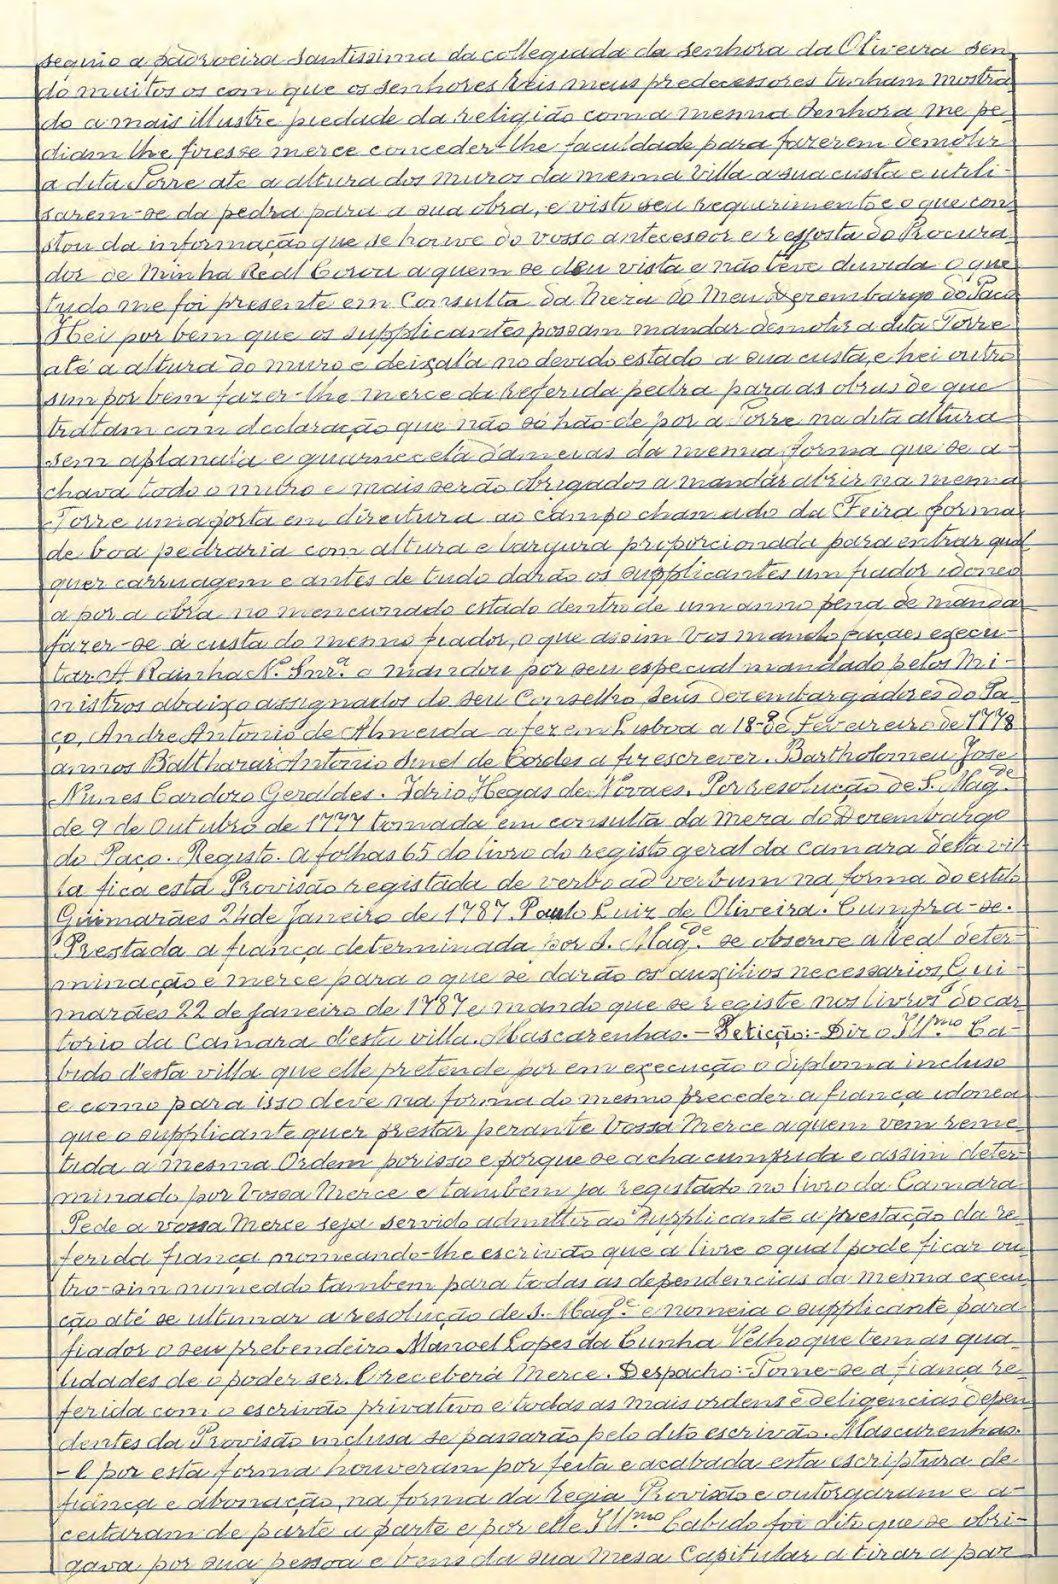 seguio a padroeira Santissima da collegiada da Senhora da Oliveira sen
do muitos os com que os senhores Reis meus predecessores tinham mostra
do a mais illustre piedade da religião com a mesma Senhora me pe
diam lhe fizesse merce conceder-lhe faculdade para fazerem demolir
a dita Torre até a altura dos muros da mesma Villa a sua custa e utili-
sarem-se da pedra para a sua obra, e visto seu requerimento e o que con
stou da informação que se houve do vosso antecessor e resposta do Procura
dor de Minha Real Corou a quem se deu vista e não teve duvida o que
tudo me foi presente em Consulta da Meza do Meu Dezembargo do Paço
Hei por bem que os supplicantes possam mandar demolir a dita Torre
até a altura do muro e deixala no devido estado a sua custa, e hei outro
sim por bem fazer-lhe merce da referida pedra para as obras de que
tratam com declaração que não só hão-de por a Torre na dita altura
sem aplanala e guarnecela d'ameias da mesma forma que se a-
chava todo o muro e mais serão obrigados a mandar abrir na mesma
Torre uma porta em direitura ao campo chamado da Feira forma
de boa pedraria com altura e largura proporcionada para entrar qual
quer carruagem e antes de tudo darão os supplicantes um fiador idoneo
a por a obra no mencionado estado dentro de um anno pena de manda
fazer-se á custa do mesmo fiador, o que assim vos mando façaes execu-
tar. A Rainha N.ª Snr.ª o mandou por seu especial mandado pelos Mi-
nistros abaixo assignados do seu Conselho seus dezembargadores do Pa-
ço, Andre Antonio de Almeida a fez em Lisboa a 18 de Fevereiro de 1778
annos Balthazar Antonio Sinel de Cordes a fiz escrever. Bartholomeu José
Nunes Cardozo Geraldes. Izdrio Hegas de Novaes. Por resolução de S. Mag.de
de 9 de Outubro de 1777 tomada em consulta da meza do Dezembargo
do Paço. Registo. A folhas 65 do livro do registo geral da camara desta vil-
la fica esta Provisão registada de verbo ad verbum na forma do estilo
Guimarães 24 de Janeiro de 1787. Paulo Luiz de Oliveira. Cumpra-se.
Prestada a fiança determinada por S. Mag.de se observe a Real deter-
minação e merce para o que se darão os auxilios necessarios, Gui-
marães 22 de Janeiro de 1787 e mando que se registe nos livros do car
torio da Camara d'esta villa. Mascarenhas. - Petição:- Diz o Ill.mo Ca-
bido d'esta villa que elle pretende por em execução o diploma incluso
e como para isso deve na forma do mesmo preceder a fiança idonea
que o supplicante quer prestar perante Vossa Merce a quem vem reme
tida a mesma Ordem por isso e porque se acha cumprida e assim deter-
minado por Vossa Merce e tambem ja registado no livro da Camara
Pede a vossa Merce seja servido admittir ao Supplicante a prestação da re-
ferida fiança nomeando-lhe escrivão que a livre o qual pode ficar ou-
tro-sim nomeado tambem para todas as dependencias da mesma execu-
ção até se ultimar a resolução de S. Mag.e e nomeia o supplicante para
fiador o seu prebendeiro Manoel Lopes da Cunha Velho que tem as qua-
lidades de o poder ser. E receberá Merce. Despacho:- Tome-se a fiança re-
ferida com o escrivão privativo e todas as mais ordens e deligencias depen
dentes da Provisão inclusa se passarão pelo dito escrivão. Mascarenhas.
- E por esta forma houveram por feita e acabada esta escriptura de
fiança e abonação, na forma da Regia Provisão e outorgaram e a-
ceitaram de parte a parte e por elle Ill.mo Cabido foi dito que se obri-
gava por sua pessoa e bens da sua Mesa Capitular a tirar a par